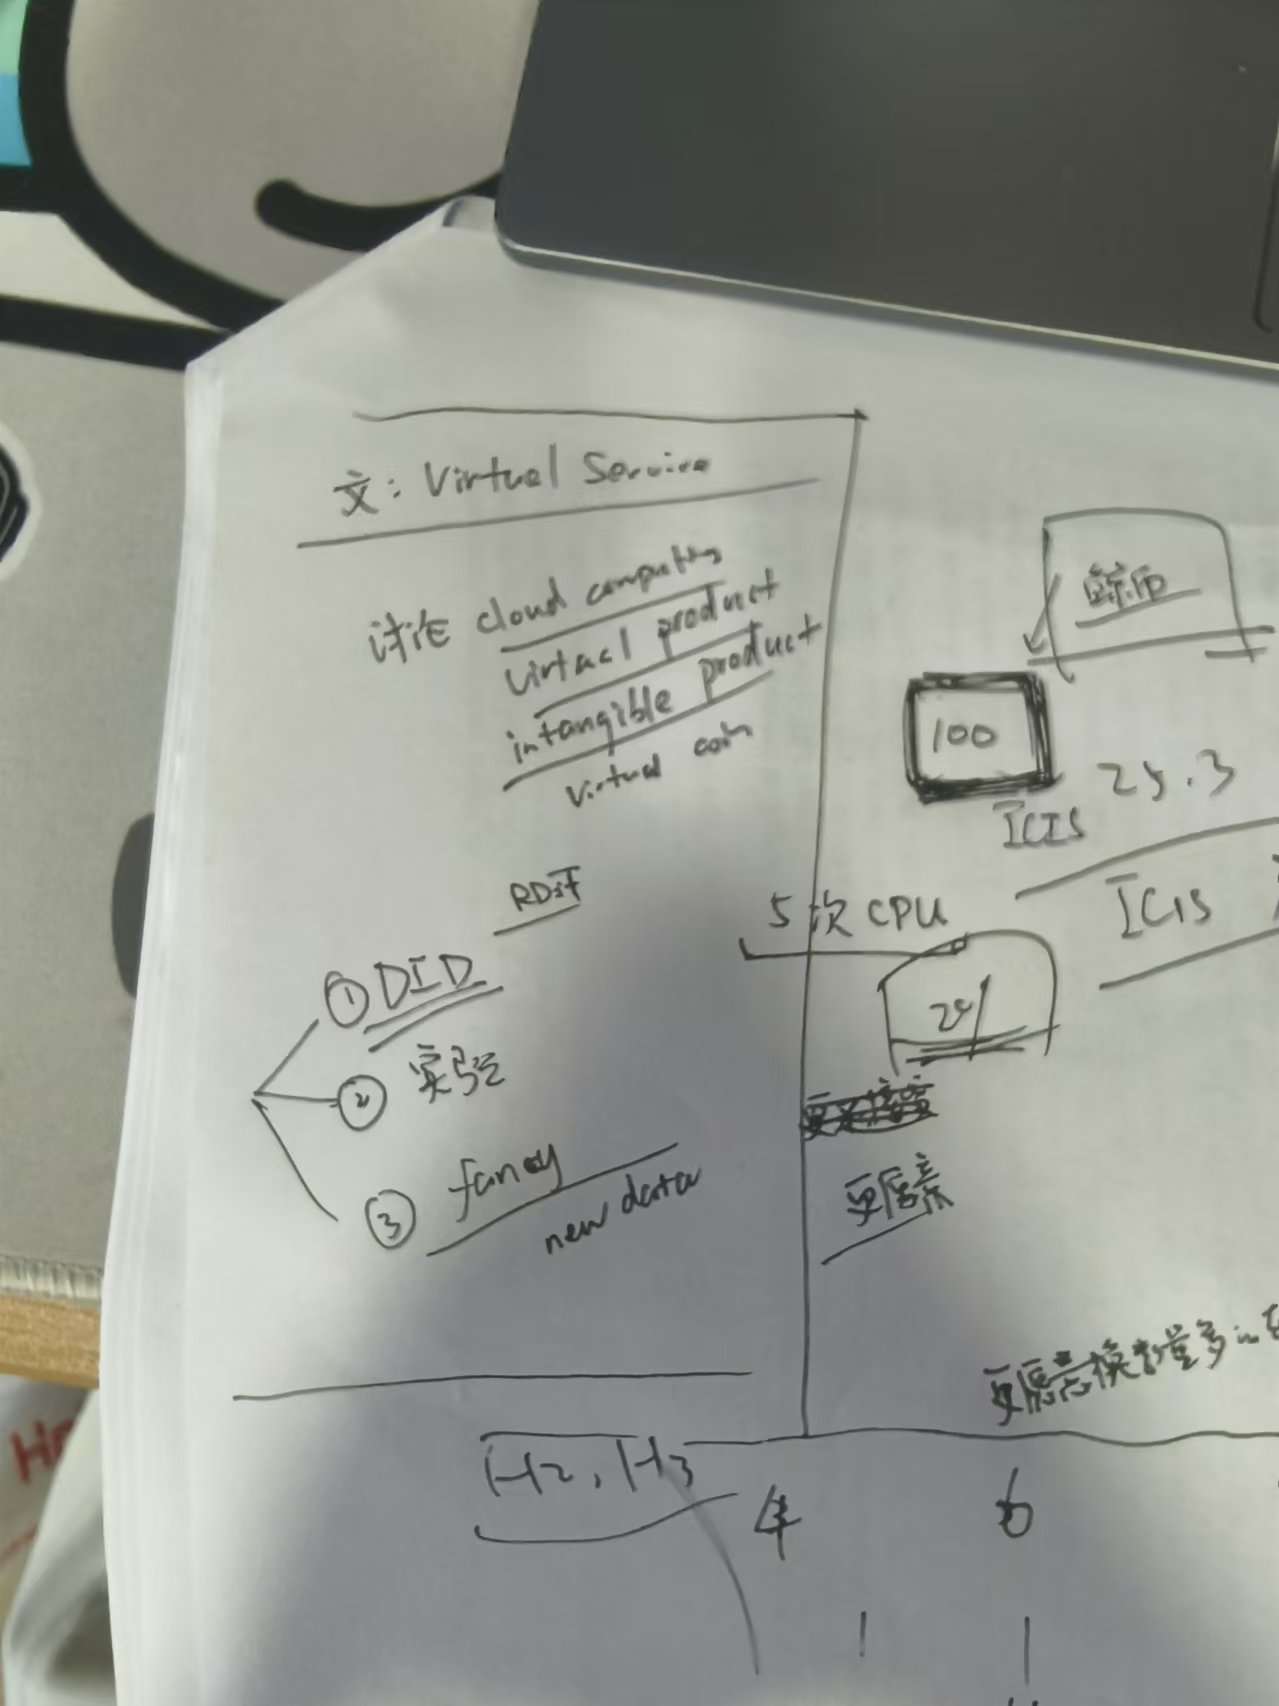 文: Virtual Service
讨论 cloud computing
virtual product
intangible product
virtual coin
RD
① DID
② 实验
③ fancy
new data
H2, H3
鲸币
100
ICIS 25.3
ICIS
5次 CPU
更愿意
更愿意换数量多
4
6